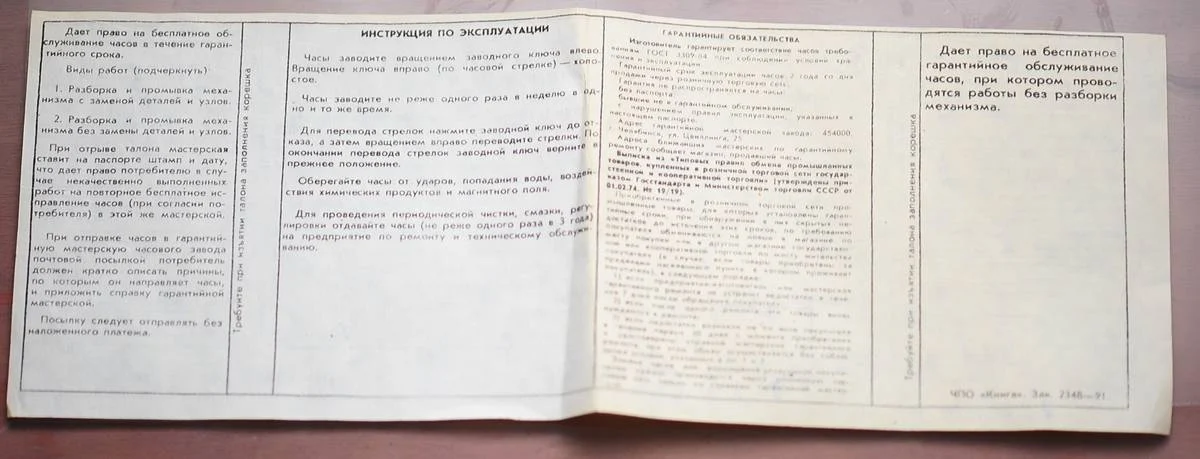 Дает право на бесплатное об-
служивание часов в течение гаран-
тийного срока.
Виды работ (подчеркнуть)
1. Разборка и промывка меха-
низма с заменой деталей и узлов.
2. Разборка и промывка меха-
низма без замены деталей и узлов.
При отрыве талона мастерская
ставит на паспорте штамп и дату,
что дает право потребителю в слу-
чае некачественно выполненных
работ на повторное бесплатное ис-
правление часов (при согласии по-
требителя) в этой же мастерской.
При отправке часов в гарантий-
ную мастерскую часового завода
почтовой посылкой потребитель
должен кратко описать причины,
по которым он направляет часы,
и приложить справку гарантийной
мастерской.
Посылку следует отправлять без
наложенного платежа.
Требуйте при изъятии талона заполнения корешка
ИНСТРУКЦИЯ ПО ЭКСПЛУАТАЦИИ
Часы заводите вращением заводного ключа влево.
Вращение ключа вправо (по часовой стрелке) — холо-
стое.
Часы заводите не реже одного раза в неделю в од-
но и то же время.
Для перевода стрелок нажмите заводной ключ до от-
каза, а затем вращением вправо переводите стрелки. По
окончании перевода стрелок заводной ключ верните в
прежнее положение.
Оберегайте часы от ударов, попадания воды, воздей-
ствия химических продуктов и магнитного поля.
Для проведения периодической чистки, смазки, регу-
лировки отдавайте часы (не реже одного раза в 3 года)
на предприятие по ремонту и техническому обслужи-
ванию.
ГАРАНТИЙНЫЕ ОБЯЗАТЕЛЬСТВА
Изготовитель гарантирует соответствие часов требо-
ваниям ГОСТ 3309-84 при соблюдении условия хра-
нения и эксплуатации.
Гарантийный срок эксплуатации часов 2 года со дня
продажи через розничную торговую сеть.
Гарантия не распространяется на часы:
без паспорта;
бывшие не в гарантийном обслуживании;
с нарушением правил эксплуатации, указанных в
настоящем паспорте.
Адрес гарантийной мастерской завода: 454000,
г. Челябинск, ул. Цвиллинга, 25
Адреса ближайших мастерских по гарантийному
ремонту сообщает магазин, продавший часы.
Выписка из «Типовых правил обмена промышленных
товаров, купленных в розничной торговой сети государ-
ственной и кооперативной торговли» (утверждены при-
казом Госстандарта и Министерством торговли СССР от
01.02.74. № 19/19).
Приобретенные в розничной торговой сети про-
мышленные товары, для которых установлены гаран-
тийные сроки, при обнаружении в них скрытых не-
достатков до истечения этих сроков, по требованию
покупателя обмениваются на новые в магазине по
месту покупки или в другом магазине государствен-
ной или кооперативной торговли по месту жительства
покупателя (в случае, если товары приобретены за
пределами населенного пункта, в котором проживает
покупатель), в следующем порядке:
Требуйте при изъятии талона заполнения корешка
Дает право на бесплатное
гарантийное обслуживание
часов, при котором прово-
дятся работы без разборки
механизма.
ЧПО «Книга». Зак. 2348—91